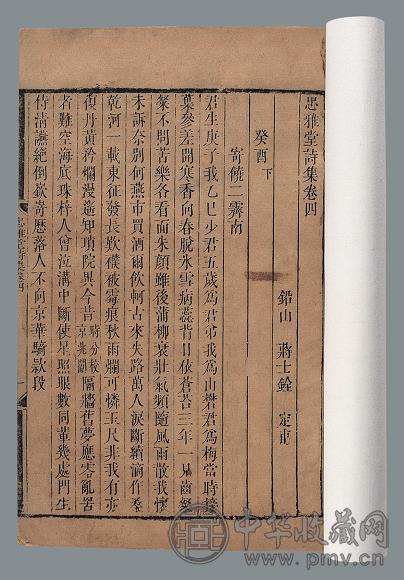 忠雅堂詩集卷四
鉛山 蔣士銓 定甫
癸酉 下
寄饒二霽南
君生庚子我乙巳少君五歲爲君弟我爲山礬君爲梅當時接
葉參差開寒香向春脫氷雪病蕊昔日依蒼苔三年一見齒
粲不問苦樂各看面朱顔雖後蒲柳衰壯氣頻隨風雨散我懷
未訴奈別何燕市買酒爾飲軻古來失路萬人淚斷續滴作桑
乾河一載東征發長歎襆被霉痕秋雨爛可憐玉尺非我有亦
復丹黃矜爛漫遥知項院異今昔時分校京兆闈隔牆舊夢應零亂苦
者難空海底珠梓人曾泣溝中斷使星照眼數同輩幾處門生
侍清讌絶倒嶔嵜歷落人不向京華騎款段
忠雅堂詩集卷四
中华收藏网
www.pmv.cn